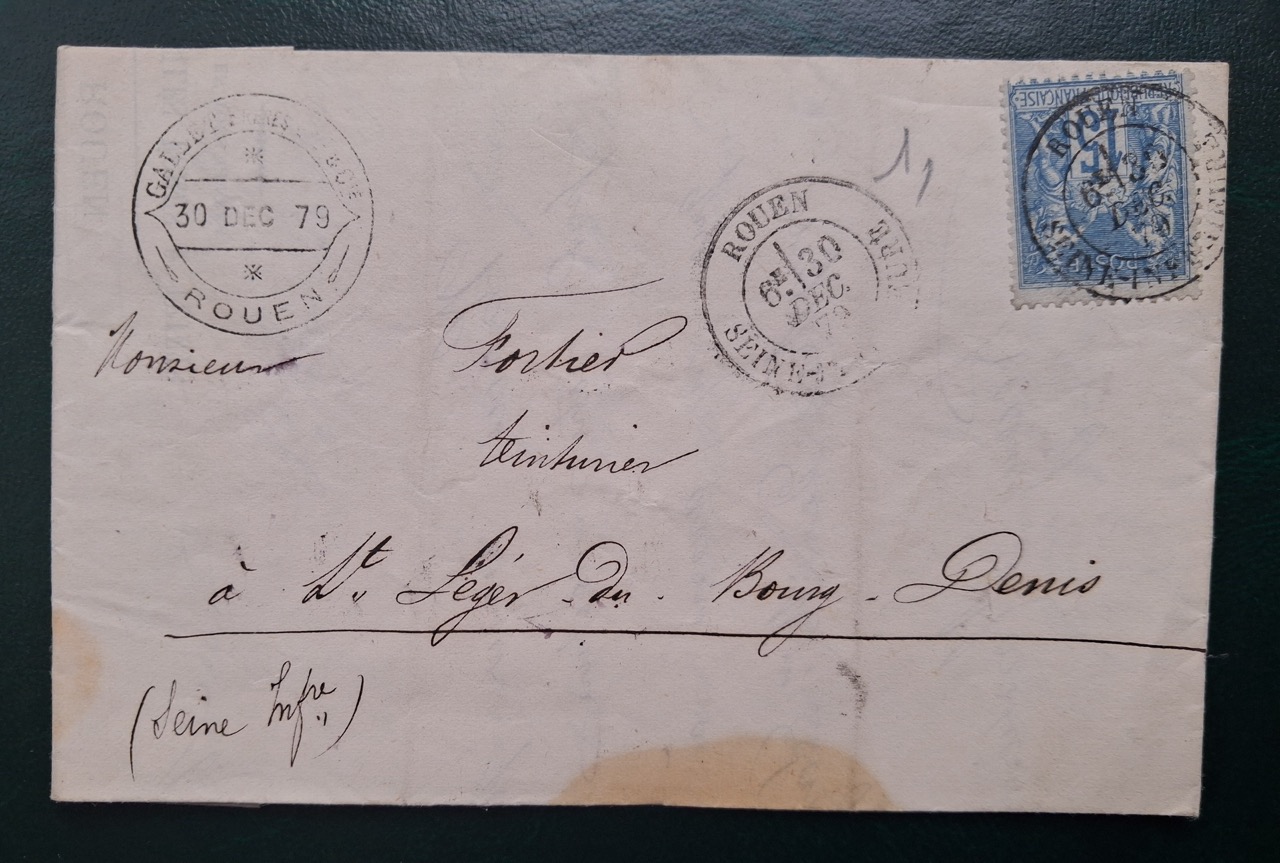 GALLET FRÈRES & CIE
30 DEC 79
ROUEN
ROUEN
6E 30
DEC.
79
SEINE-INFRE
REPUBLIQUE FRANÇAISE
15
POSTE
ROUEN
6E 30
DEC.
79
Monsieur Fortier
teinturier
à St. Léger du Bourg Denis
(Seine Infre)